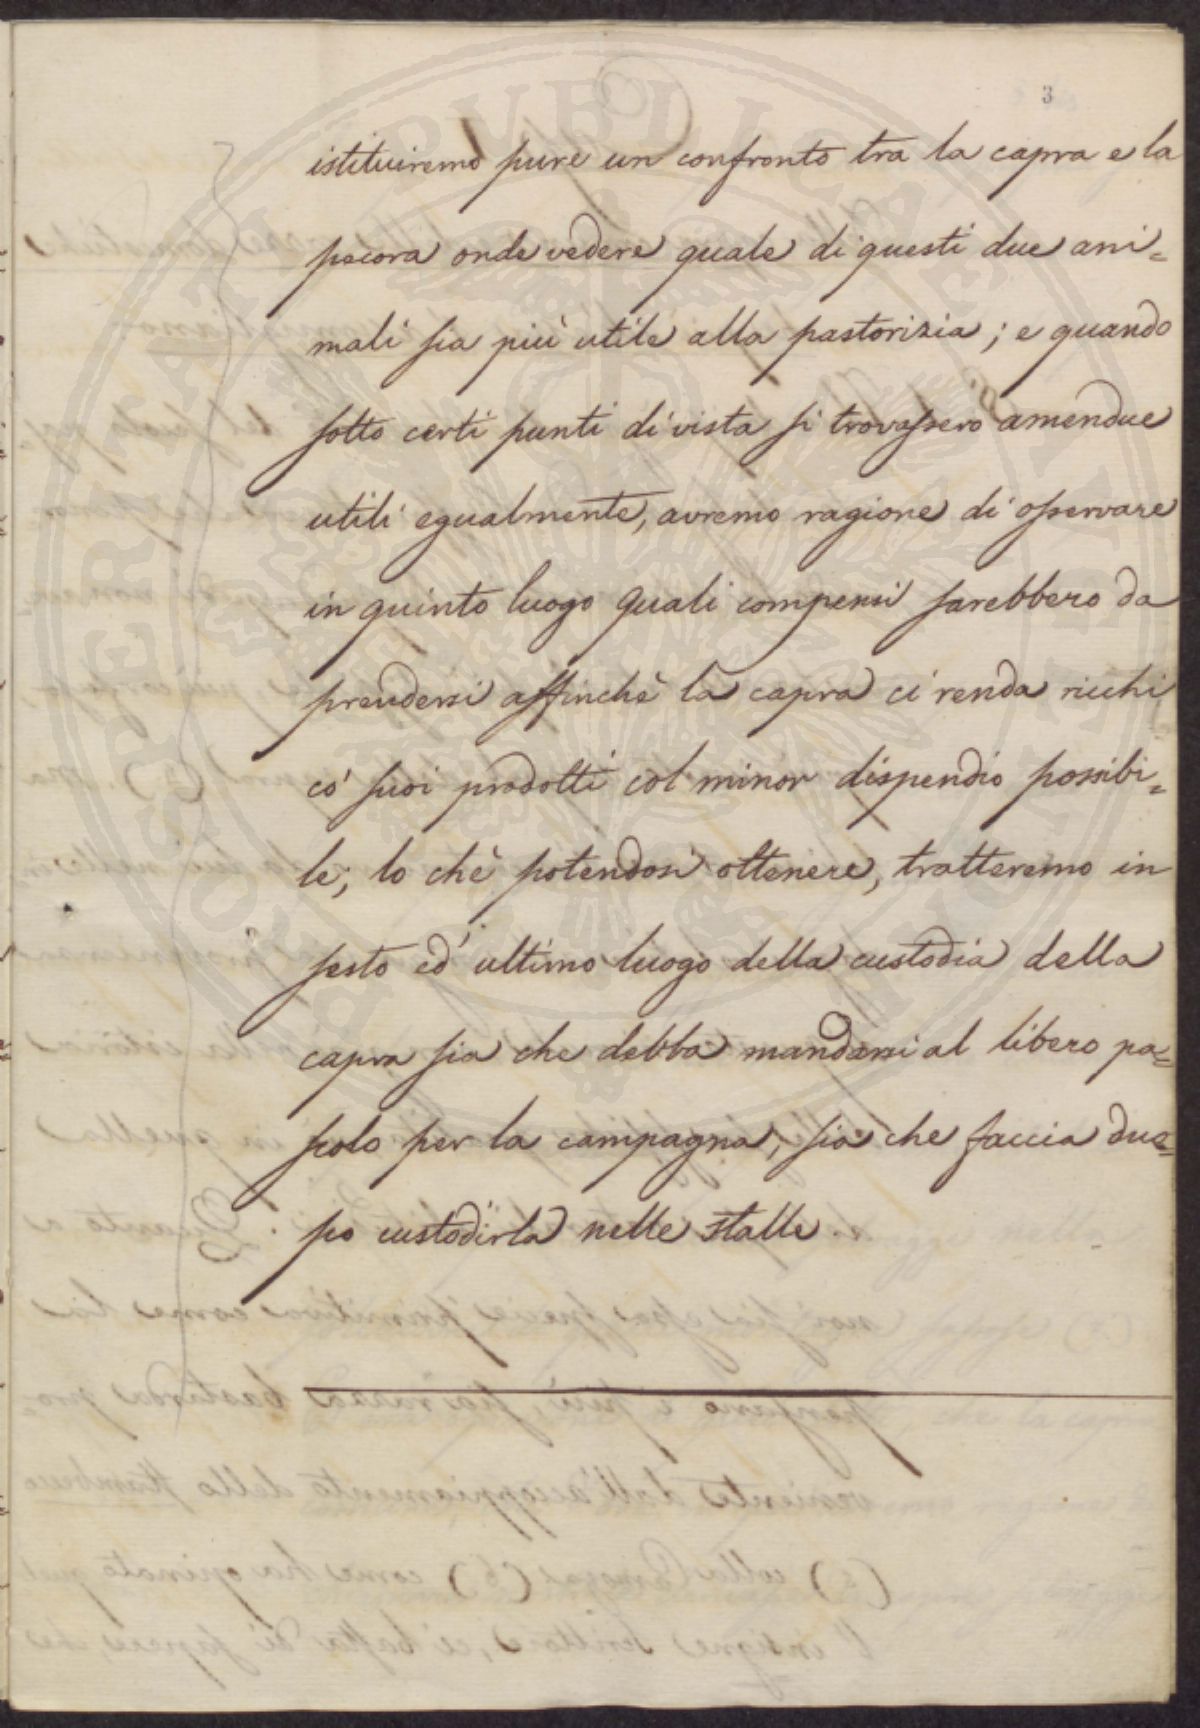 3
istituiremo pure un confronto tra la capra e la
pecora onde vedere quale di questi due ani=
mali sia più utile alla pastorizia; e quando
sotto certi punti di vista si trovassero amendue
utili egualmente, avremo ragione di osservare
in quinto luogo quali compensi sarebbero da
prendersi affinchè la capra ci renda ricchi
co' suoi prodotti col minor dispendio possibi=
le; lo chè potendosi ottenere, tratteremo in
sesto ed ultimo luogo della custodia della
capra sia che debba mandarsi al libero pa=
scolo per la campagna, sia che faccia duo=
po custodirla nelle stalle.